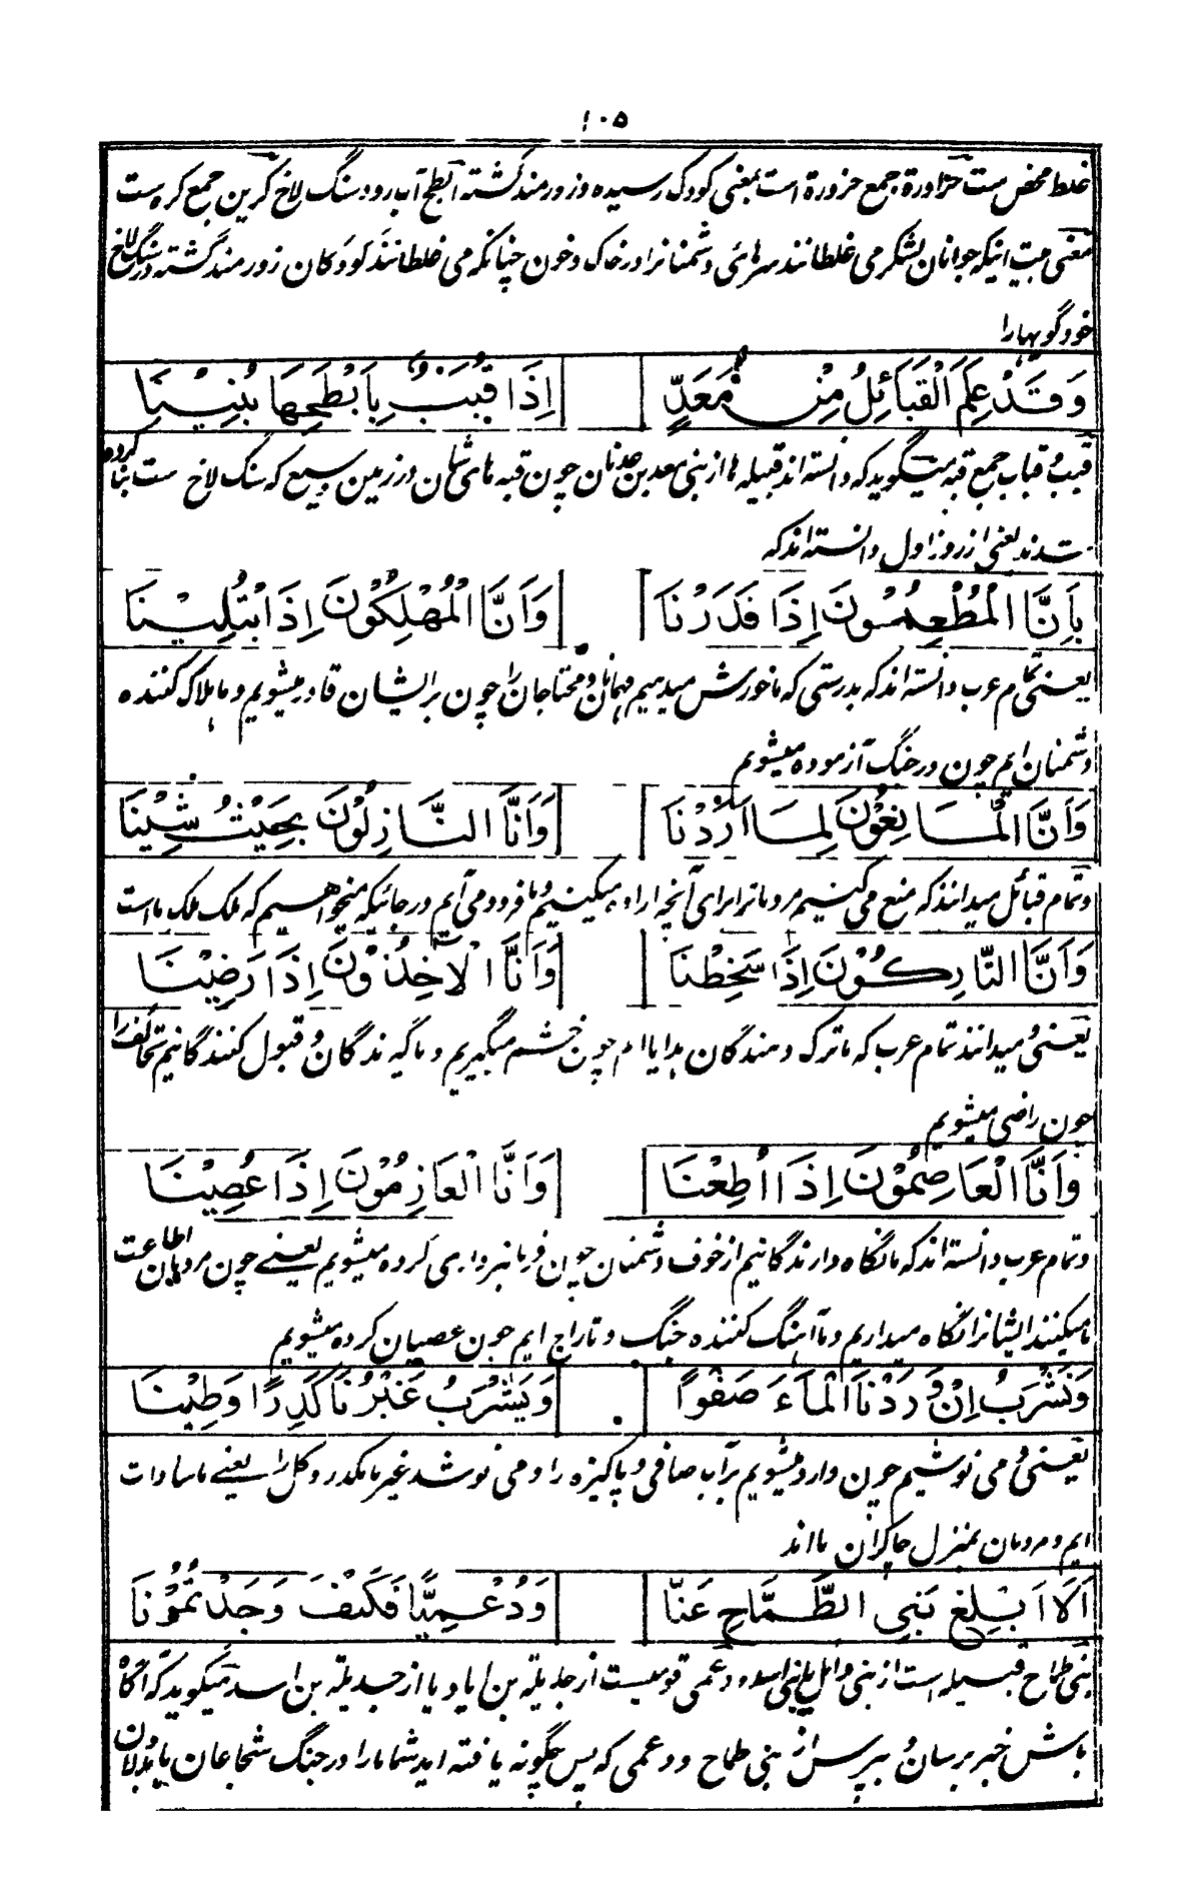 ۱۰۵
غلط محض ست حزاورة جمع حزورة است بمعنی کودک رسیده و زورمند گشته ابطح آب رود سنگ لاخ کرین جمع کره ست
معنی بیت اینکه جوانان لشکر می غلطانند سرهای دشمنانرا در خاک و خون چنانکه می غلطانند کودکان زورمند گشته در سنگ لاخ
خود گویهارا
وَقَدْ عَلِمَ الْقَبَائِلُ مِنْ مَعَدٍّ إِذَا قُبَبٌ بِأَبْطَحِهَا بُنِيْنَا
قبب و قباب جمع قبه میگوید که دانسته اند قبیله ها از بنی معد بن عدنان چون قبه های شان در زمین وسیع که سنگ لاخ ست بنا کرده
شدند یعنی از روز اول دانسته اند که
بِاَنَّا الْمُطْعِمُوْنَ اِذَا قَدَرْنَا وَاَنَّا الْمُهْلِكُوْنَ اِذَا ابْتُلِيْنَا
یعنی تمام عرب دانسته اند که بدرستی که ما خورش میدهیم مهمانان و محتاجان را چون بر ایشان قادر میشویم و ما هلاک کننده
دشمنان ایم چون در جنگ آزموده میشویم
وَاَنَّا الْمَانِعُوْنَ لِمَا اَرَدْنَا وَاَنَّا النَّازِلُوْنَ بِحَيْثُ شِيْنَا
و تمام قبائل میدانند که منع می کنیم مردمانرا برای آنچه اراده میکنیم و ما فرود می آیم در جائیکه میخواهیم که ملک ملک ما است
وَاَنَّا التَّارِكُوْنَ اِذَا سَخِطْنَا وَاَنَّا الْاٰخِذُوْنَ اِذَا رَضِيْنَا
یعنی و میدانند تمام عرب که ما ترک دهندگان هدایا ایم چون خشم میگیریم و ما گیرندگان و قبول کنندگانیم تحائف را
چون راضی میشویم
وَاَنَّا الْعَاصِمُوْنَ اِذَا اُطِعْنَا وَاَنَّا الْعَازِمُوْنَ اِذَا عُصِيْنَا
و تمام عرب دانسته اند که ما نگاه دارندگانیم از خوف دشمنان چون فرمانبرداری کرده میشویم یعنے چون مردمان اطاعت
ما میکنند ایشانرا نگاه میداریم و ما آهنگ کننده جنگ و تاراج ایم چون عصیان کرده میشویم
وَنَشْرَبُ اِنْ وَرَدْنَا الْمَآءَ صَفْوًا وَيَشْرَبُ غَيْرُنَا كَدِرًا وَطِيْنَا
یعنی و می نوشیم چون وارد میشویم بر آب صافی و پاکیزه را و می نوشد غیر ما مکدر و گل را یعنے ما سادات
ایم و مردمان بمنزل چاکران ما اند
اَلَا اَبْلِغْ بَنِي الطَّمَّاحِ عَنَّا وَدُعْمِيًّا فَكَيْفَ وَجَدْتُمُوْنَا
بنی طماح قبیله است از بنی وائل یا بنی اسد و دعمی قومیست از جدیلة بن ایاد یا از جدیلة بن اسد میگوید که آگاه
باش خبر برسان و بپرس از بنی طماح و دعمی که پس چگونه یافته اید شما مارا در جنگ شجاعان یا بزدلان